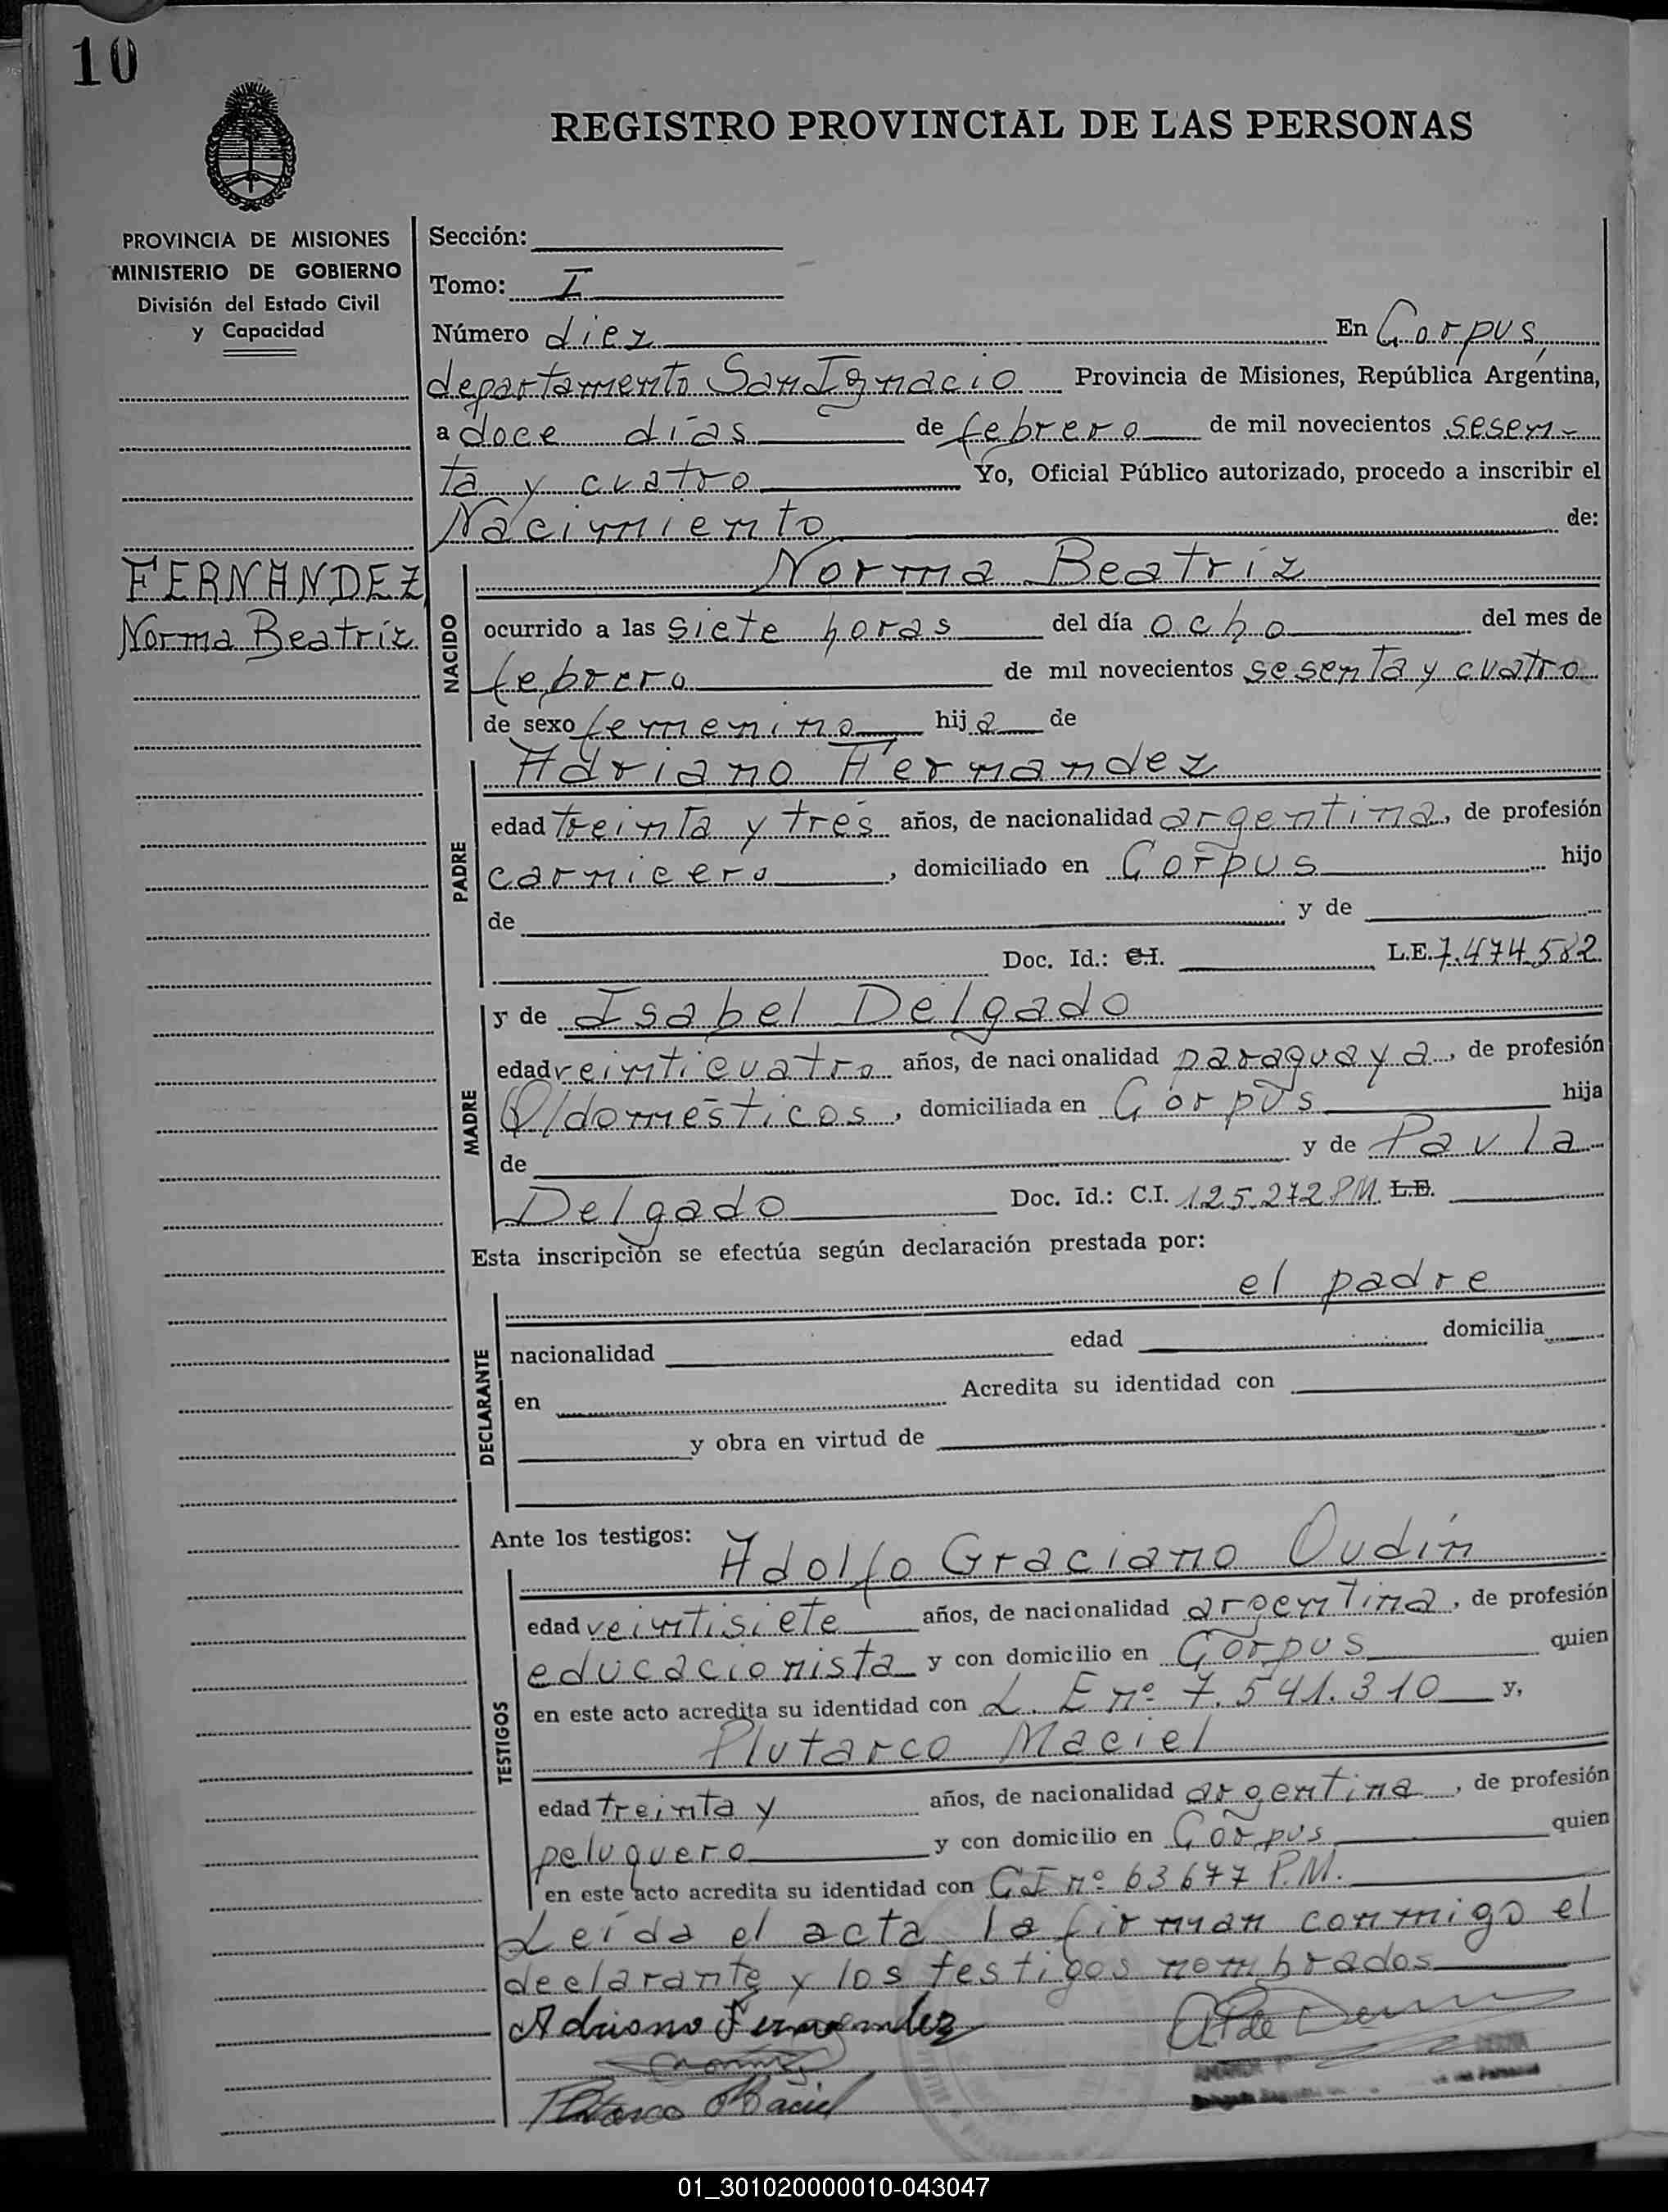 10
REGISTRO PROVINCIAL DE LAS PERSONAS
PROVINCIA DE MISIONES
MINISTERIO DE GOBIERNO
División del Estado Civil
y Capacidad
FERNANDEZ
Norma Beatriz
Sección:
Tomo: I
Número diez En Corpus,
departamento San Ignacio Provincia de Misiones, República Argentina,
a doce días de febrero de mil novecientos sesen-
ta y cuatro Yo, Oficial Público autorizado, procedo a inscribir el
Nacimiento de:
NACIDO
Norma Beatriz
ocurrido a las siete horas del día ocho del mes de
febrero de mil novecientos sesenta y cuatro
de sexo femenino hija de
PADRE
Adriano Fernandez
edad treinta y tres años, de nacionalidad argentina, de profesión
carnicero, domiciliado en Corpus hijo
de y de
Doc. Id.: C.I. L.E. 7.474.582
MADRE
y de Isabel Delgado
edad veinticuatro años, de nacionalidad paraguaya, de profesión
Q/domésticos, domiciliada en Corpus hija
de y de Paula
Delgado Doc. Id.: C.I. 125.272 P.M. L.E.
Esta inscripción se efectúa según declaración prestada por:
DECLARANTE
el padre
nacionalidad edad domicilia
en Acredita su identidad con
y obra en virtud de
Ante los testigos: Adolfo Graciano Oudin
TESTIGOS
edad veintisiete años, de nacionalidad argentina, de profesión
educacionista y con domicilio en Corpus quien
en este acto acredita su identidad con L. E nº 7.541.310 y,
Plutarco Maciel
edad treinta y años, de nacionalidad argentina, de profesión
peluquero y con domicilio en Corpus quien
en este acto acredita su identidad con CI nº 63677 P.M.
Leída el acta la firman conmigo el
declarante y los testigos nombrados
Adriano Fernandez
Plutarco Maciel
01_301020000010-043047